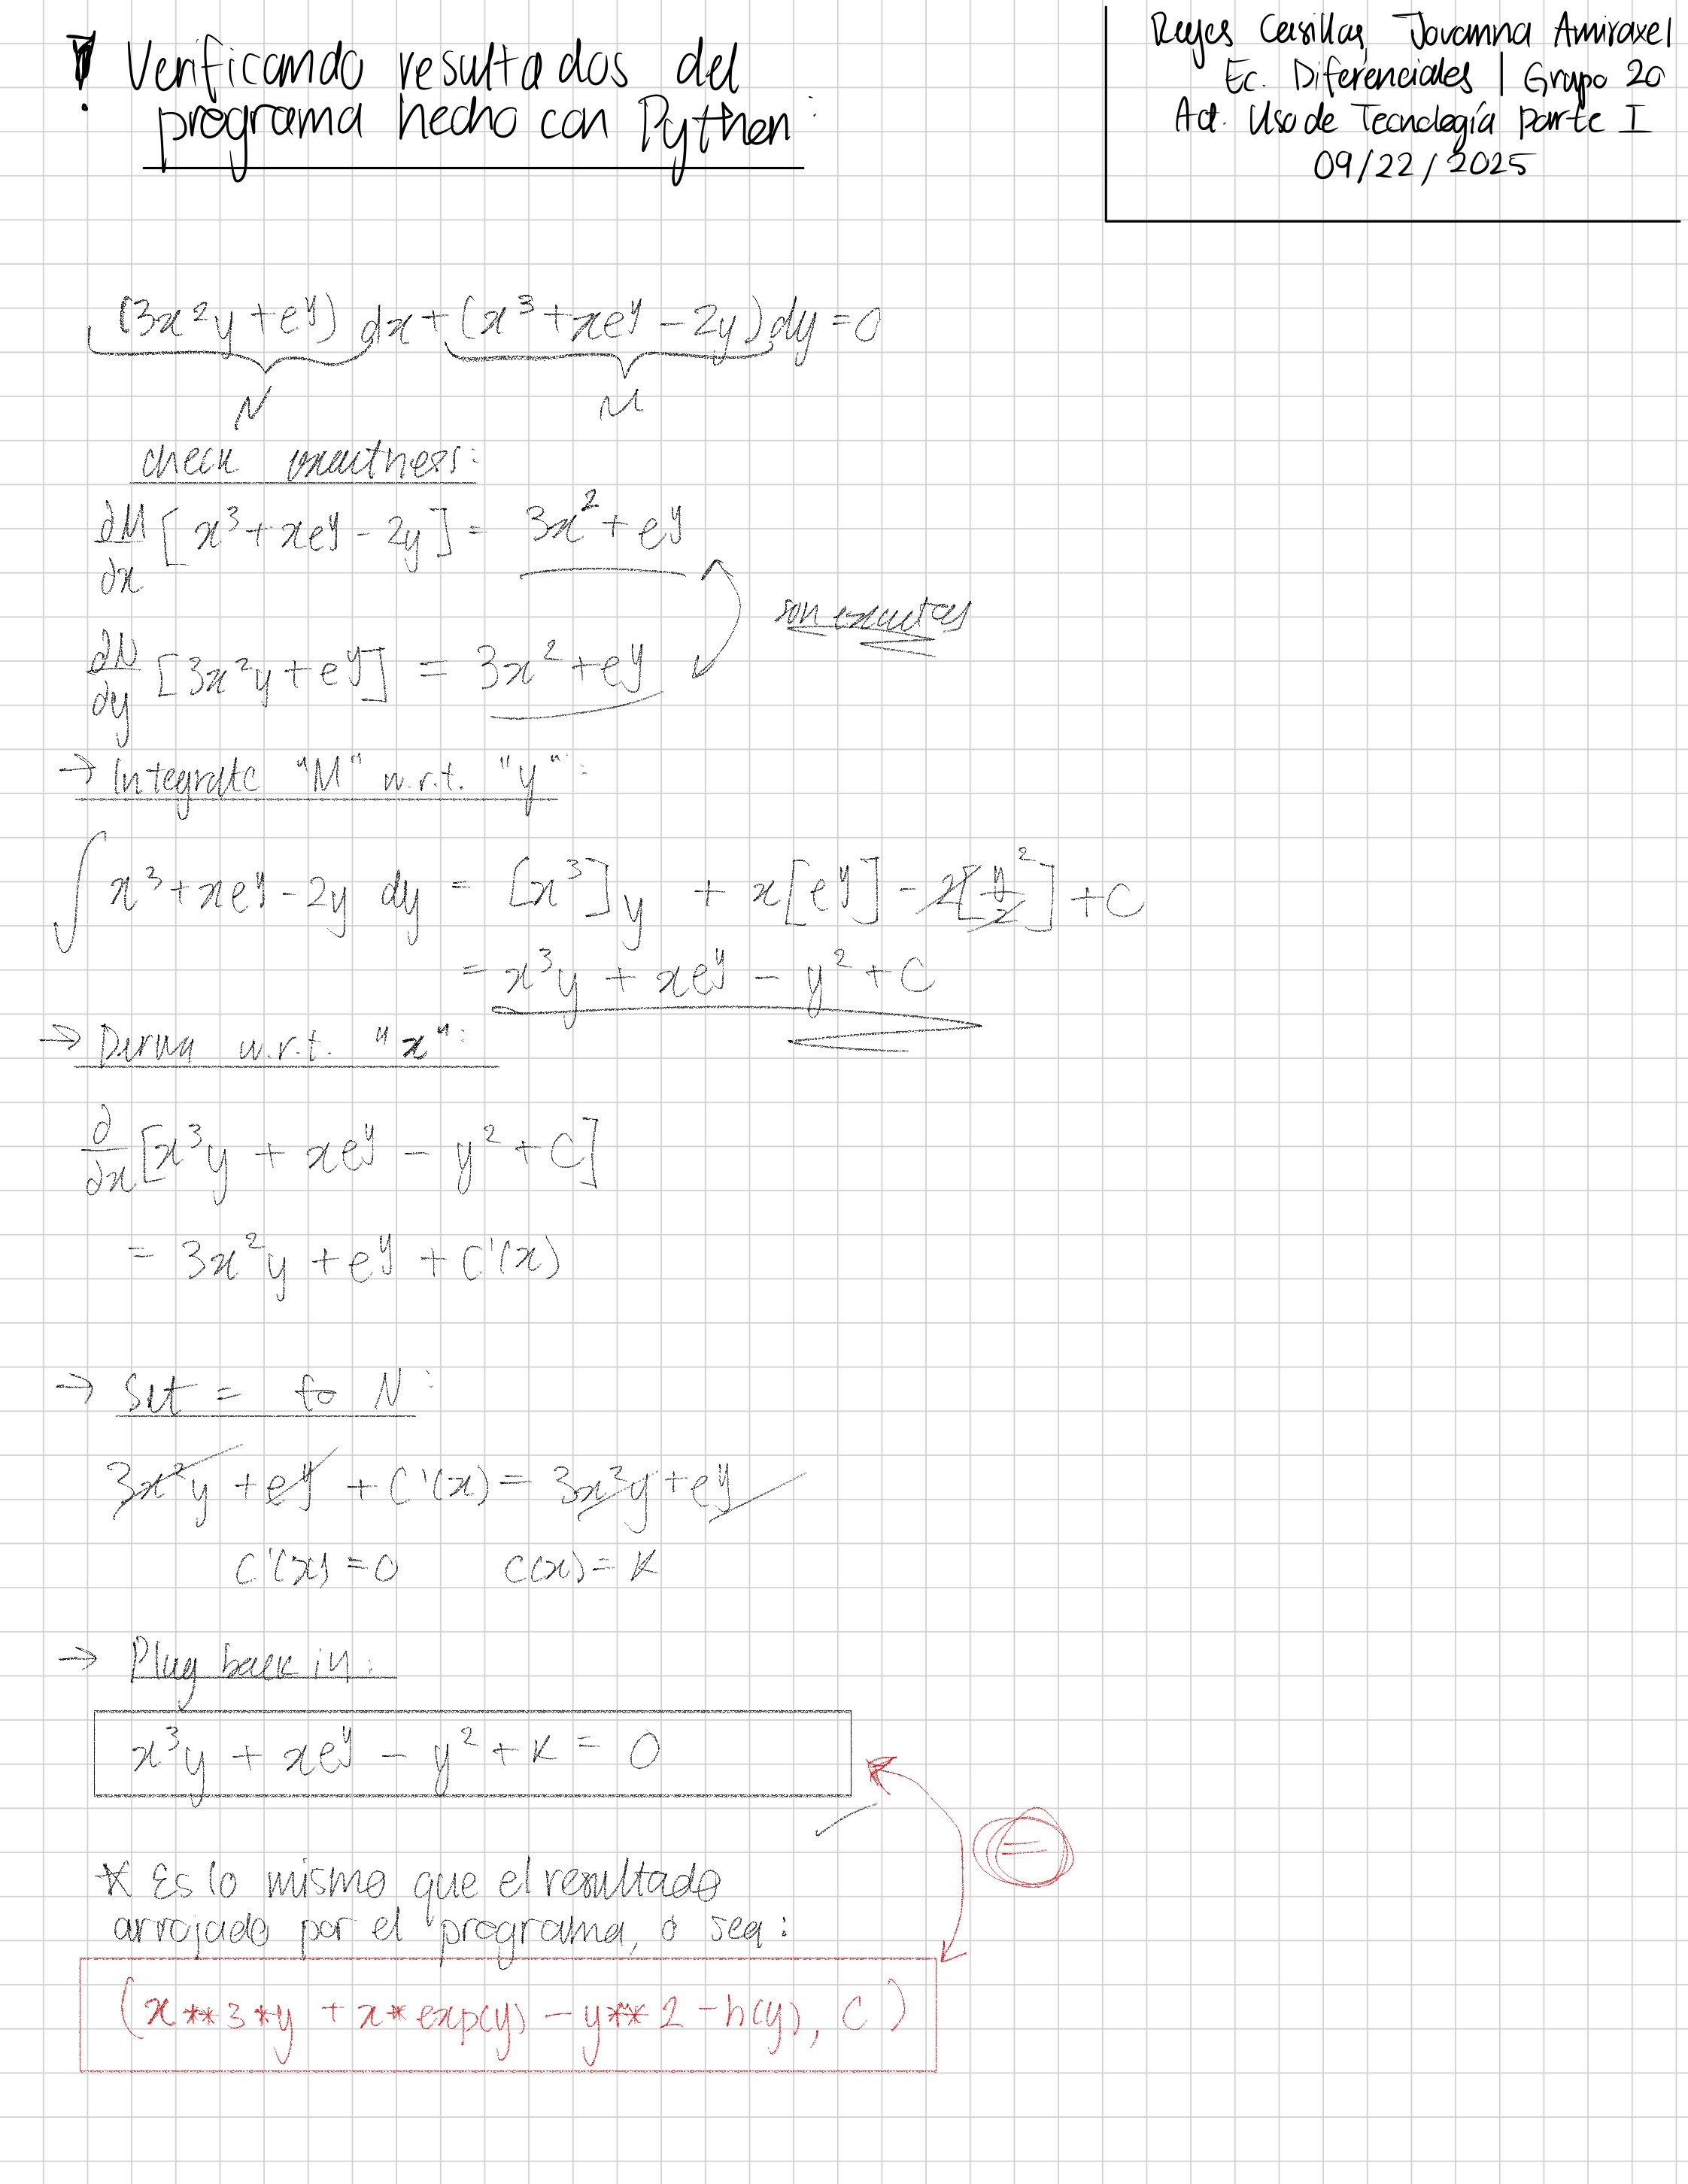 ! Verificando resultados del
programa hecho con Python:
Reyes Casillas, Jovanna Amiraxel
Ec. Diferenciales | Grupo 20
Act. Uso de Tecnología parte I
09/22/2025
(3x²y + e^y) dx + (x³ + xe^y - 2y) dy = 0
N M
check exactness:
∂M/∂x [x³ + xe^y - 2y] = 3x² + e^y
son exactas
∂N/∂y [3x²y + e^y] = 3x² + e^y
→ Integrate "M" w.r.t. "y":
∫ x³ + xe^y - 2y dy = [x³]y + x[e^y] - 2[y²/2] + C
= x³y + xe^y - y² + C
→ Deriva w.r.t. "x":
∂/∂x [x³y + xe^y - y² + C]
= 3x²y + e^y + C'(x)
→ Set = to N:
3x²y + e^y + C'(x) = 3x²y + e^y
C'(x) = 0 C(x) = K
→ Plug back in:
x³y + xe^y - y² + K = 0
=
* Es lo mismo que el resultado
arrojado por el programa, o sea:
(x**3*y + x*exp(y) - y**2 - h(y), C)